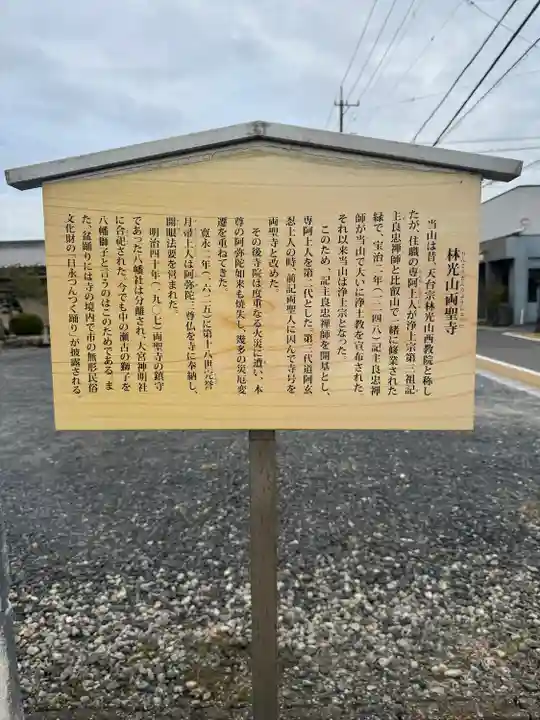 林光山両聖寺
当山は昔、天台宗林光山西教院と称し
たが、住職の専阿上人が浄土宗第三祖記
主良忠禅師と比叡山で一緒に修業された
縁で、宝治二年(一二四八)記主良忠禅
師が当山で大いに浄土教を宣布された。
それ以来当山は浄土宗となった。
このため、記主良忠禅師を開基とし、
専阿上人を第二代とした。第三代道阿玄
忍上人の時、前記両聖人に因んで寺号を
両聖寺と改めた。
その後寺院は度重なる火災に遭い、本
尊の阿弥陀如来も焼失し、幾多の災厄変
遷を重ねてきた。
寛永二年(一六二五)に第十八世完誉
月帰上人は阿弥陀三尊仏を寺に奉納し、
開眼法要を営まれた。
明治四十年(一九〇七)両聖寺の鎮守
であった八幡社は分離され、大宮神明社
に合祀された。今でも中の瀬古の獅子を
八幡獅子と言うのはこのためである。ま
た、盆踊りには寺の境内で市の無形民俗
文化財の「日永つんつく踊り」が披露される。